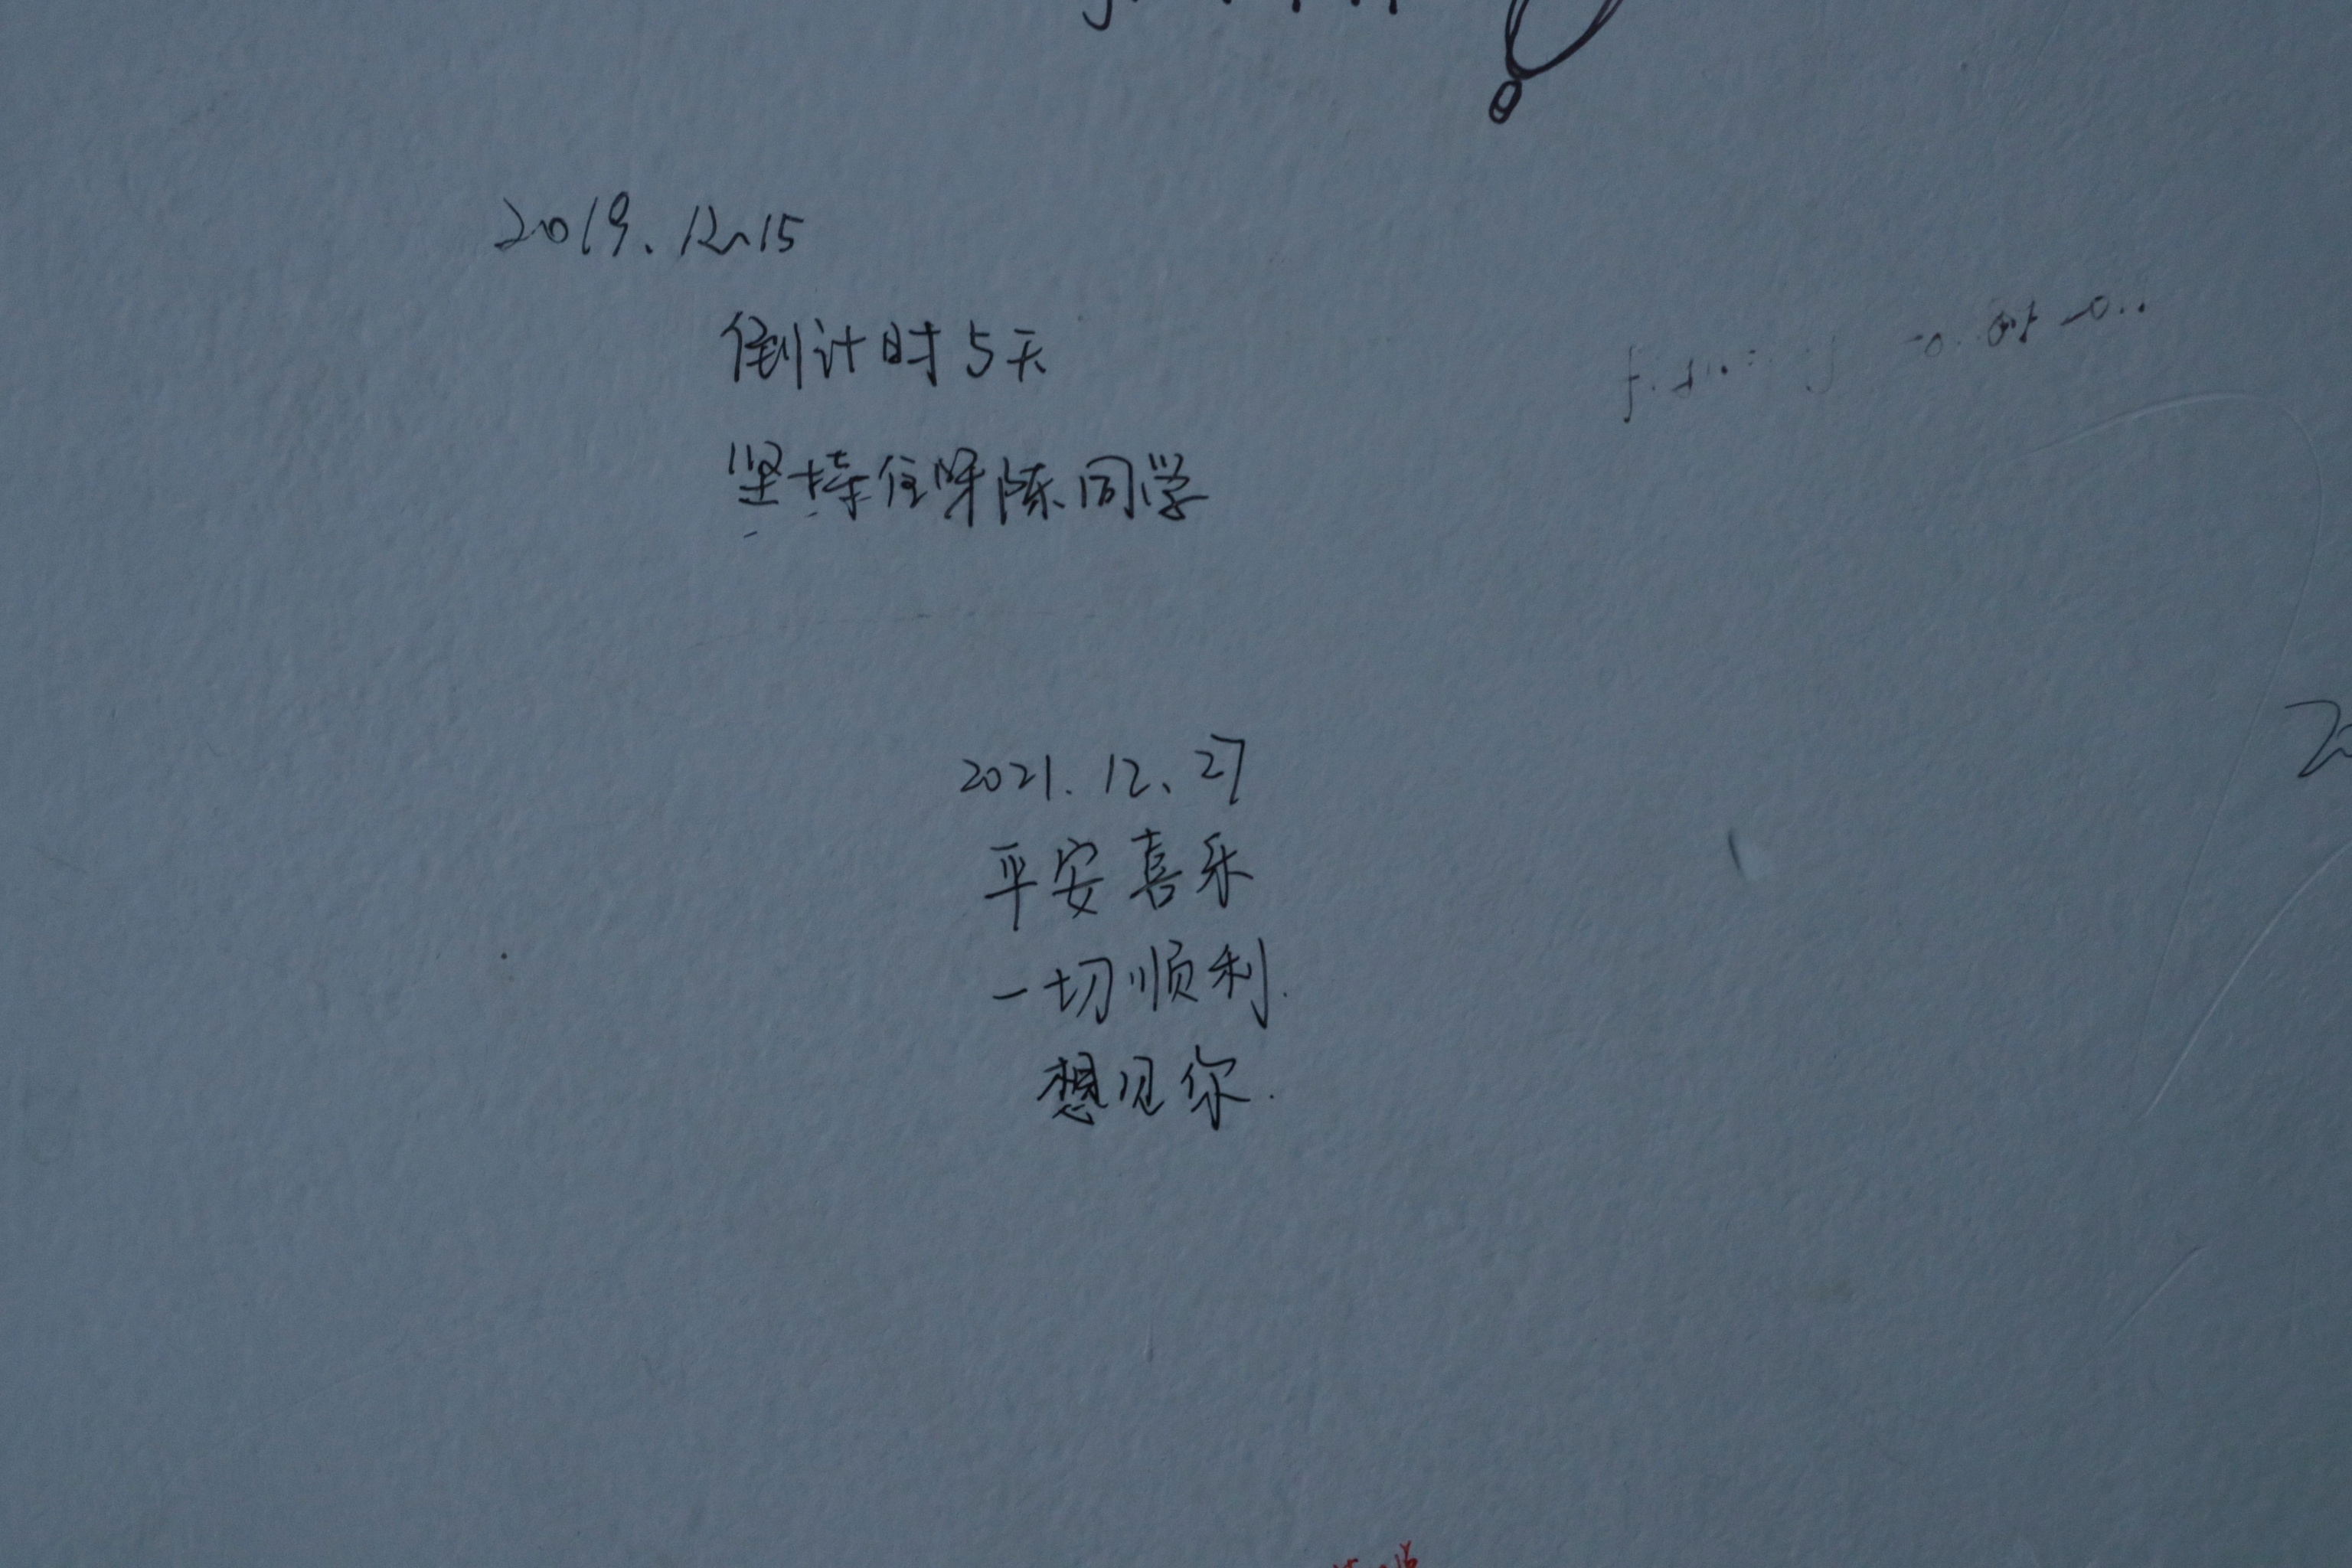 2019.12.15
倒计时5天
坚持住呀陈同学
2021.12.27
平安喜乐
一切顺利.
想见你.